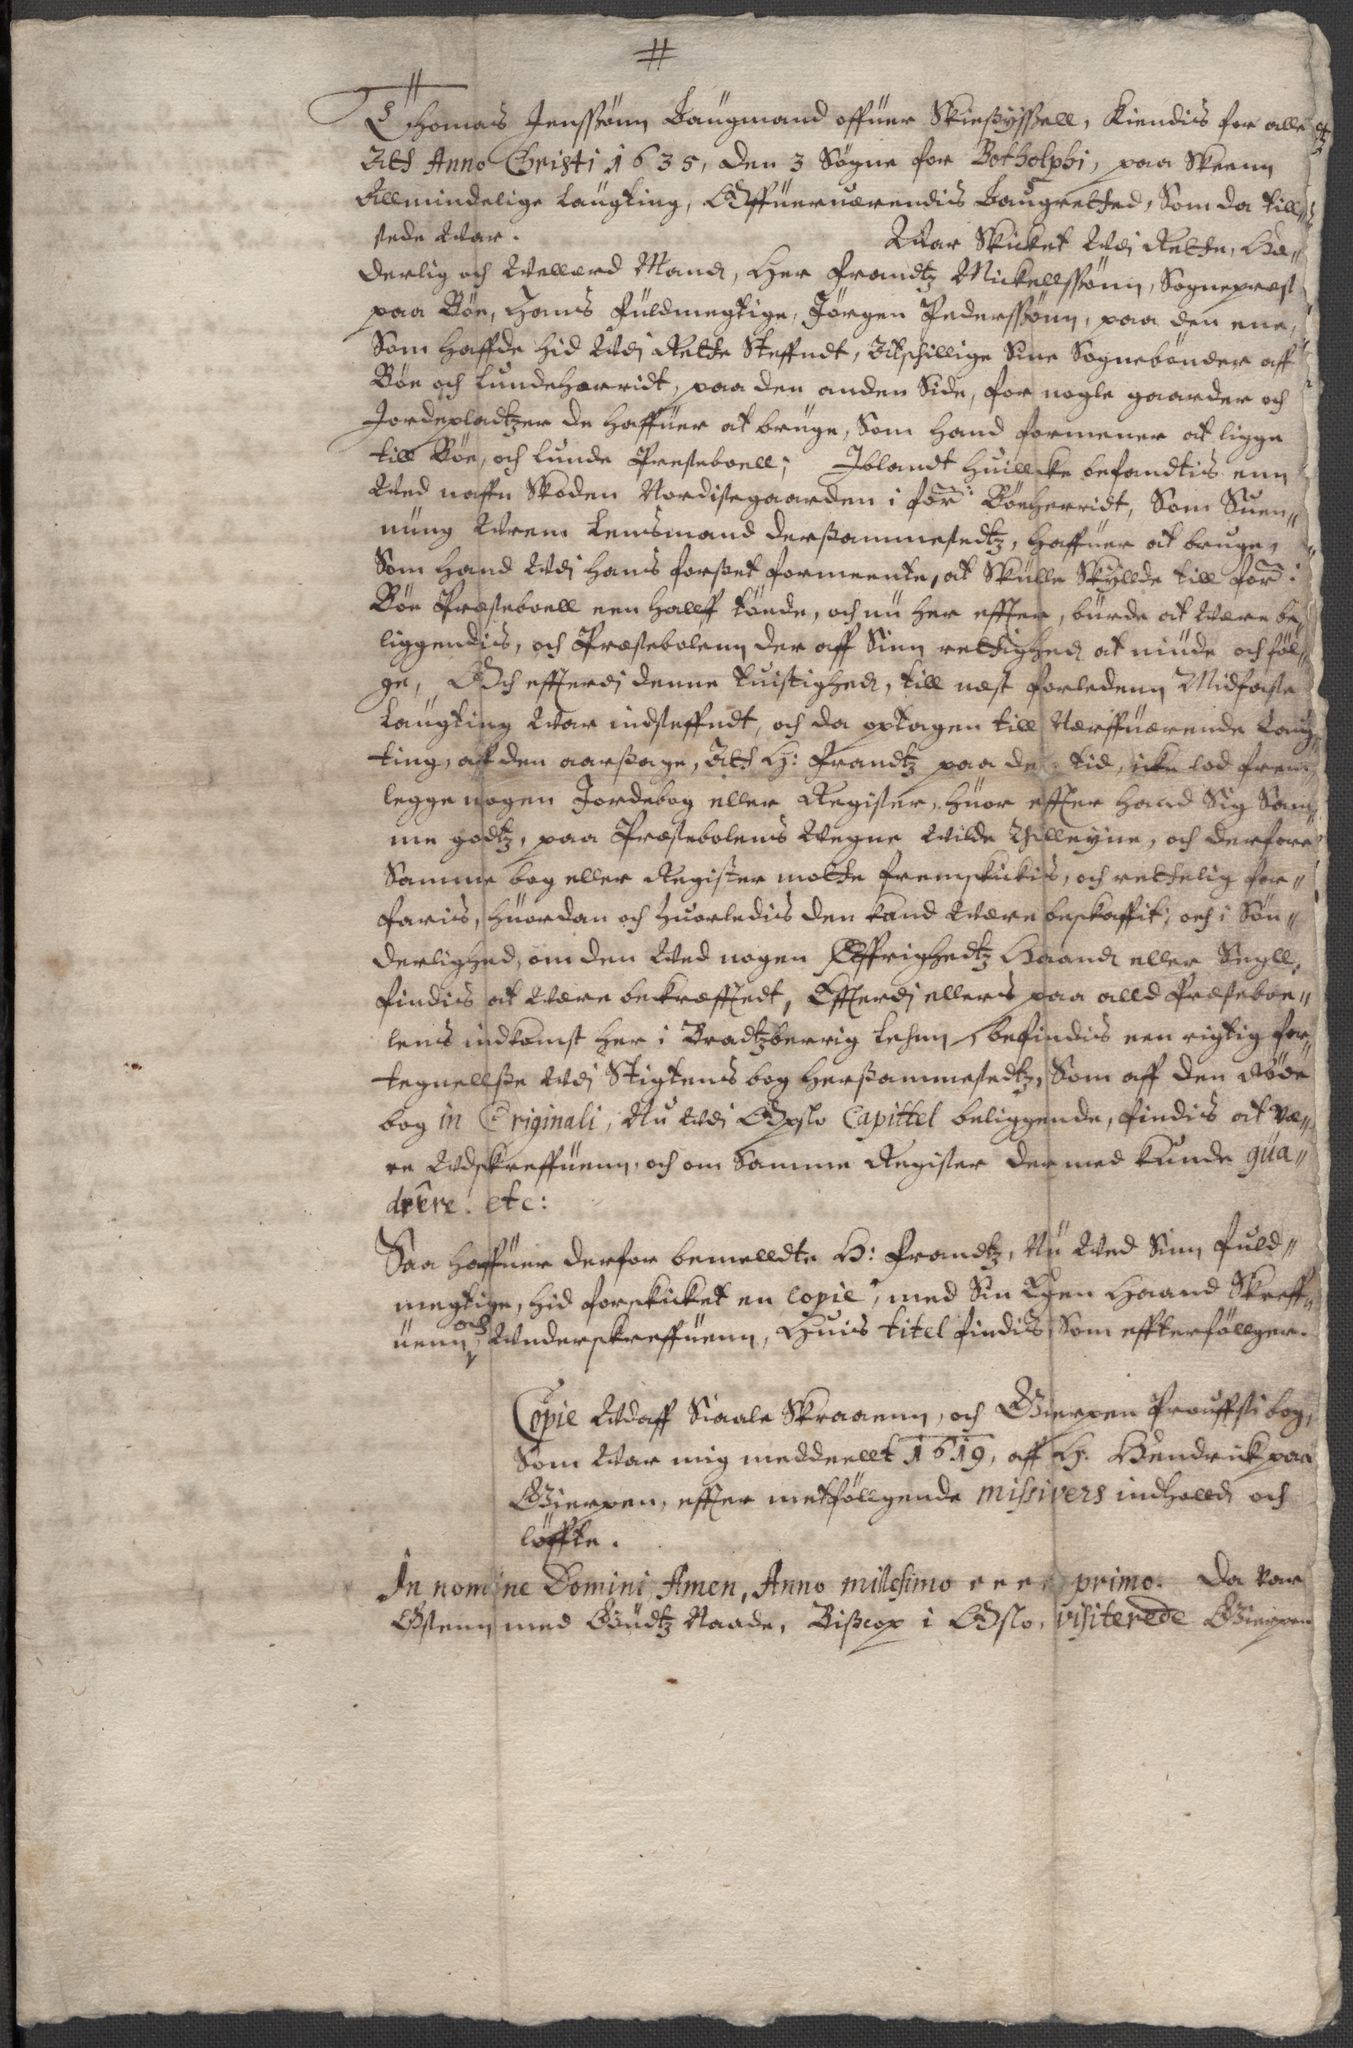 #
Thomas Jenssønn Laugmand offuer Skiesyssell, Kiendis for alle
Att Anno Christi 1635, den 3 Søgne for Botholphi, paa Skeenn
Allmindelige laugting, Offueruærendis Laugretted, Som da till"
stede War. War Skicket Udj Rette, Hæ"
derlig och Wellærd Mand, Her Frandtz Mickellssønn, Sognepræst
paa Bøe, Hans fuldmegtige, Jørgen Pederssønn, paa den ene,
Som haffde hid Udj Rette Steffndt, Atschillige Sine Sognebønder aff
Bøe och Lundeherridt, paa den anden Side, for nogle gaarder och
Jordepladtzer de haffuer at bruge, Som hand formener at ligge
till Bøe, och Lunde Presteboell; Iblandt huillcke befandtis enn
Ved naffn Skoden Nordistegaarden i for: Bøeherridt, Som Suen"
nüng Wrem Lensmand dersammestedtz, haffuer at bruge,
Som hand Udj hans forset formeente, at Skulle Skyllde till for:
Bøe Præsteboell een hallff tønde, och nu her effter, burde at være be"
liggendis, och Præstebolenn der aff Sinn rettighed at niude och føl"
ge, Och efftterdj denne tuistighed, till næst forledenn Midfaste
Laugting War indsteffndt, och da optagen till Nærffuærende Laug
ting, aff den aarsage, Att H: Frandtz paa den tid, icke lod frem
legge nogen Jordebog eller Register, huor effter hand Sig Sam
me godtz, paa Præstebolens Wegne Wilde Tilleyne, och derfore
Samme bog eller Register motte fremskickis, och rettelig for"
faris, huordan och huorledis den kand Være beskaffit, och i Søn"
derlighed, om den Ved nogen Øffrighedtz Haand eller Seigll,
findis at Være bekræfftedt, Effterdj ellers paa alld Præsteboe"
lens indkomst her i Bradtzberrig Lehnn, befindis een rigtig for"
tegnellse Udj Stigtens bog hersammestedtz, Som aff den Røde
bog in Originali, Nu Udj Opslo Capittel beliggende, findis at væ"
re Udskreffuenn, och om Samme Register dermed kunde qua"
drere. etc:
Saa haffuer derfor bemelldte H: Frandtz, Nu Ved Sinn fuld"
megtige, hid forskicket en Copie, med Sin Egen Haand Skreff"
uenn och Underskreffuenn, Huis titel findis Som effterføllger.
Copie Udaff Siaale Skraaenn, och Gierpen Prouffsti bog,
Som War mig meddeellt 1619, aff H. Hendrick paa
Gierpen, effter metføllgende missivers indholld och
løffte.
In nomine Domini Amen, Anno millesimo cccc primo. Da var
Østenn med Gudtz Naade, Biscop i Oslo, visiterede Gierpen